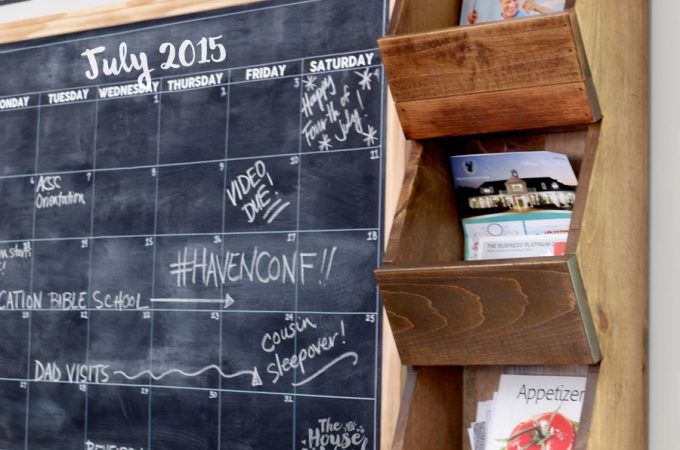 July 2015
ONDAY TUESDAY WEDNESDAY THURSDAY FRIDAY SATURDAY
1 2 3 4
Happy
Fourth of
July!
6 7 8 9 10 11
ACSC
Orientation
VIDEO
DUE!
14 15 16 17 18
#HAVENCONF!!
CATION BIBLE SCHOOL
21 22 23 24 25
cousin
sleepover!
DAD VISITS
28 29 30 31
The
House
THE BUSINESS PLATINUM
Appetizer